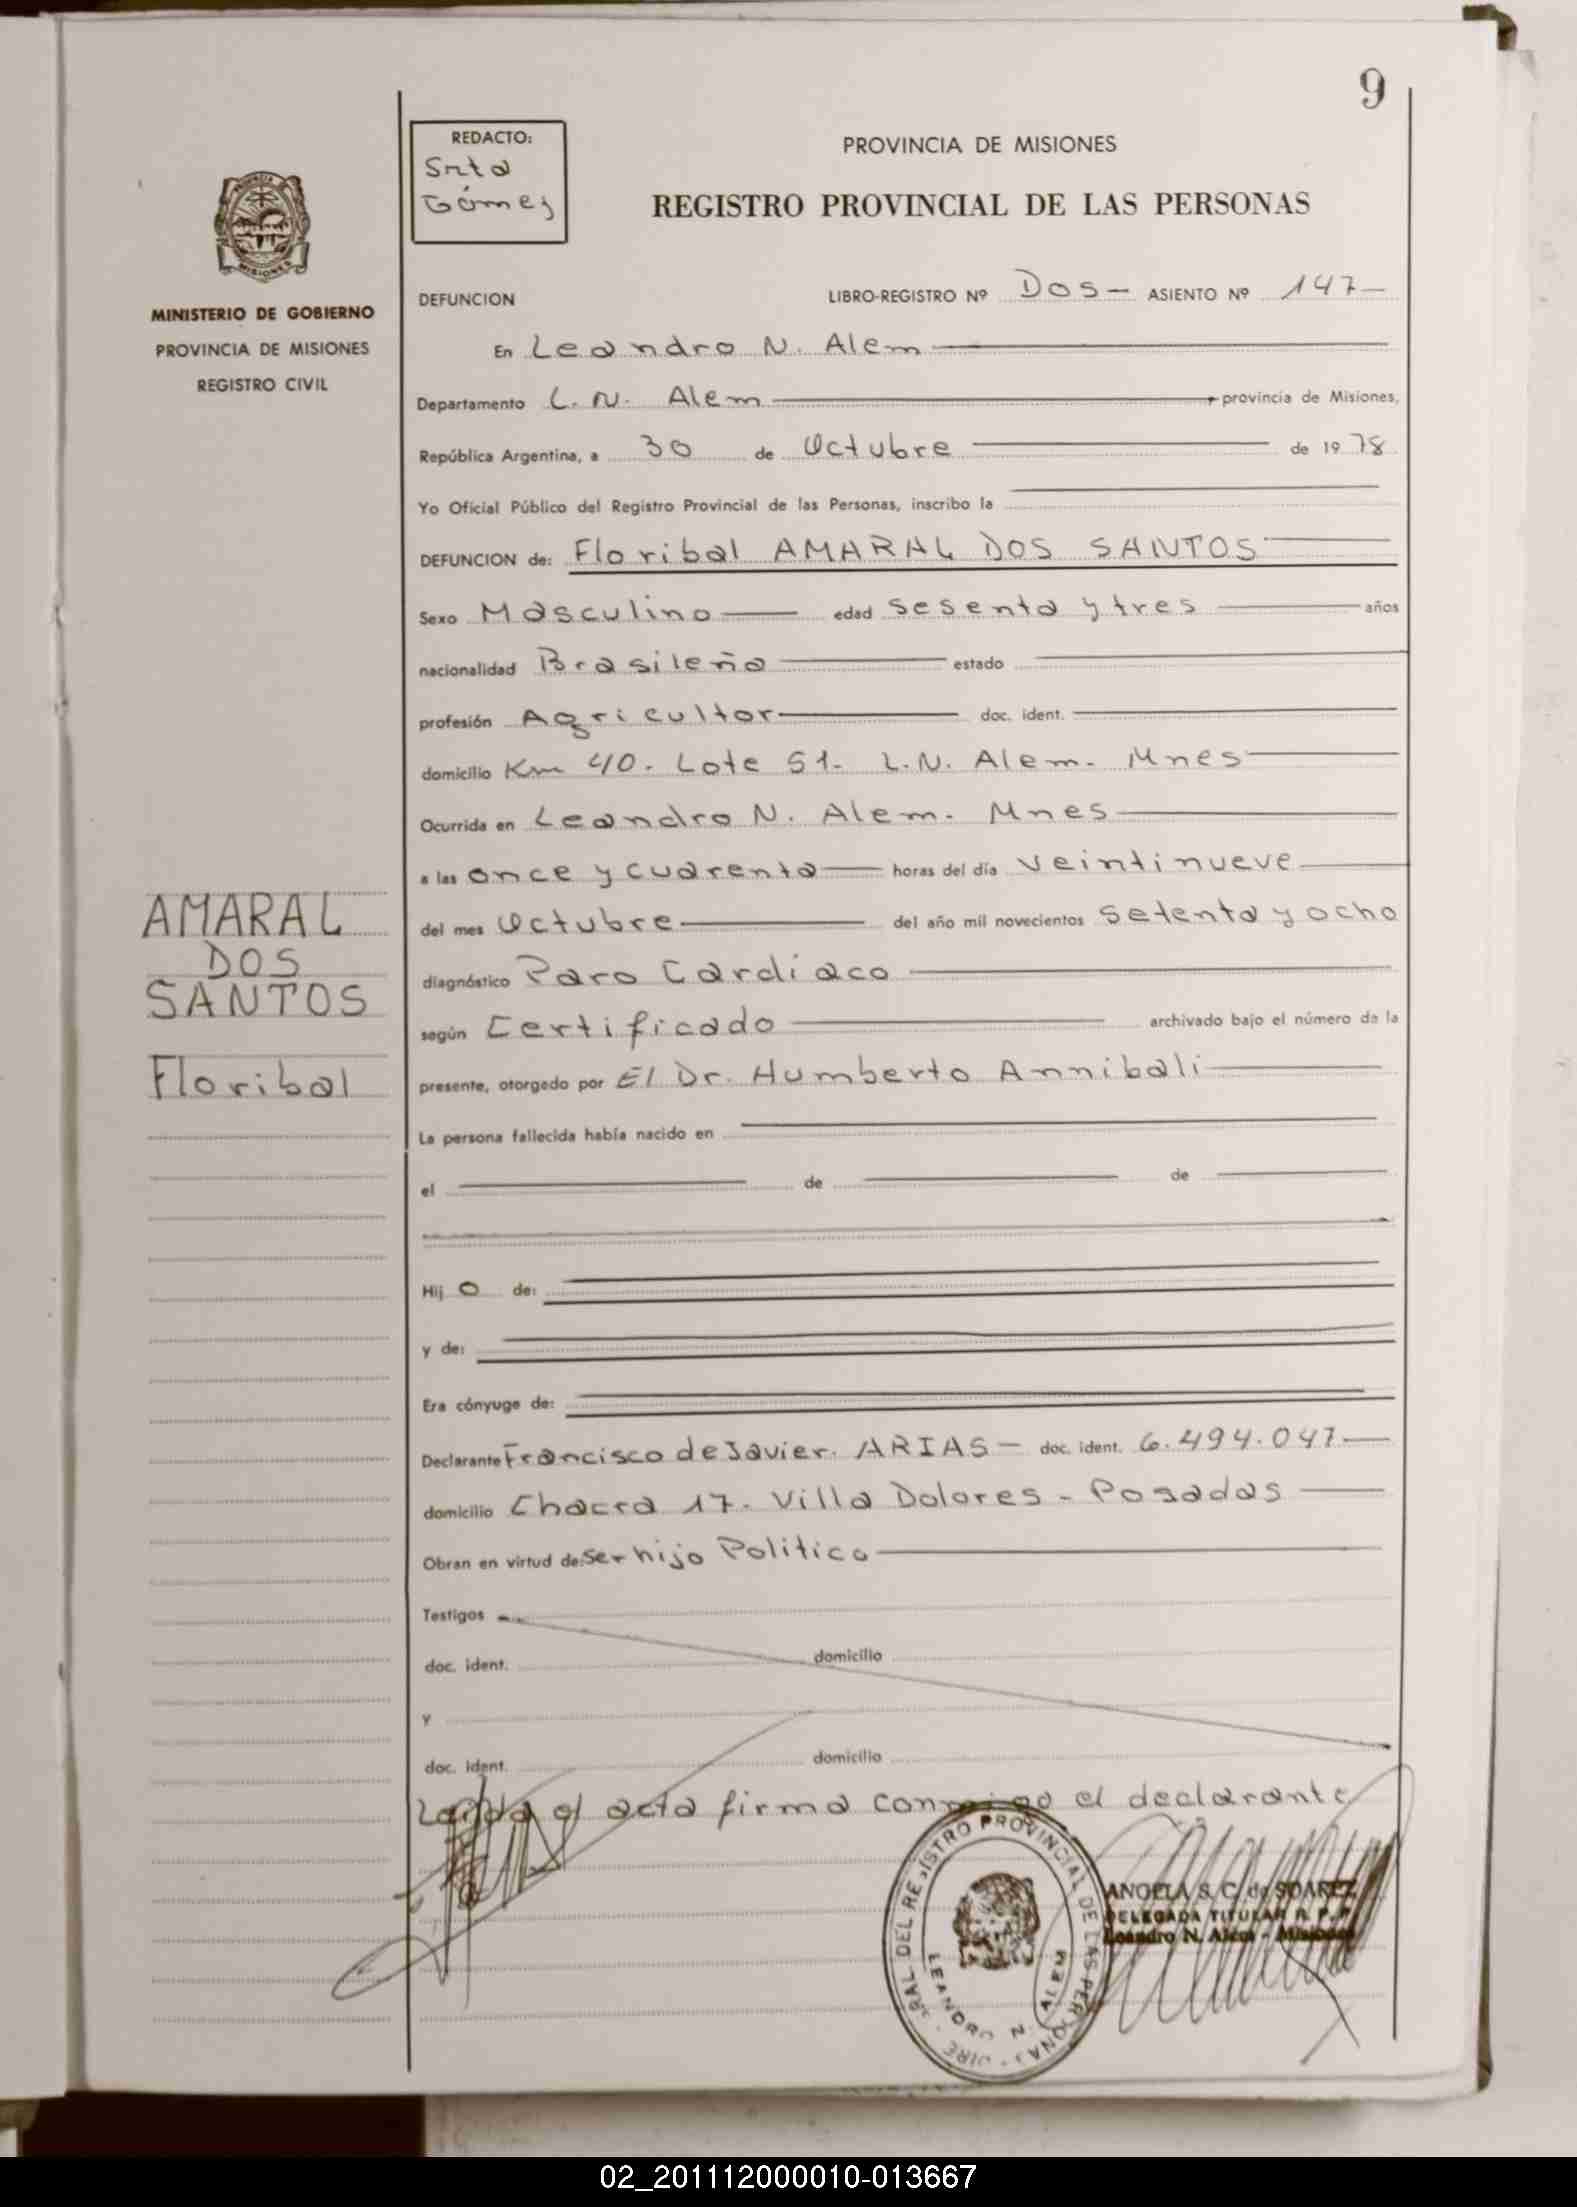 9
REDACTO:
Srta
Gómez
PROVINCIA DE MISIONES
REGISTRO PROVINCIAL DE LAS PERSONAS
PROVINCIA DE
MISIONES
MINISTERIO DE GOBIERNO
PROVINCIA DE MISIONES
REGISTRO CIVIL
DEFUNCION LIBRO-REGISTRO Nº Dos- ASIENTO Nº 147-
En Leandro N. Alem
Departamento L. N. Alem provincia de Misiones,
República Argentina, a 30 de Octubre de 1978
Yo Oficial Público del Registro Provincial de las Personas, inscribo la
DEFUNCION de: Floribal AMARAL DOS SANTOS
Sexo Masculino edad sesenta y tres años
nacionalidad Brasileña estado
profesión Agricultor doc. ident.
domicilio Km 40. Lote 51. L.N. Alem. Mnes
Ocurrida en Leandro N. Alem. Mnes
a las once y cuarenta horas del día veintinueve
del mes Octubre del año mil novecientos setenta y ocho
diagnóstico Paro Cardiaco
según Certificado archivado bajo el número de la
presente, otorgado por El Dr. Humberto Annibali
La persona fallecida había nacido en
el de de
Hij o de:
y de:
Era cónyuge de:
Declarante Francisco de Javier. ARIAS- doc. ident. 6.494.047
domicilio Chacra 17. Villa Dolores - Posadas
Obran en virtud de: ser hijo Politico
Testigos
doc. ident. domicilio
y
doc. ident. domicilio
Leída el acta firma conmigo el declarante
AMARAL
DOS
SANTOS
Floribal
DEL REGISTRO PROVINCIAL DE LAS PERSONAS
LEANDRO N. ALEM
ANGELA S. C. de SOAREZ
DELEGADA TITULAR R. P. P.
Leandro N. Alem - Misiones
02_201112000010-013667